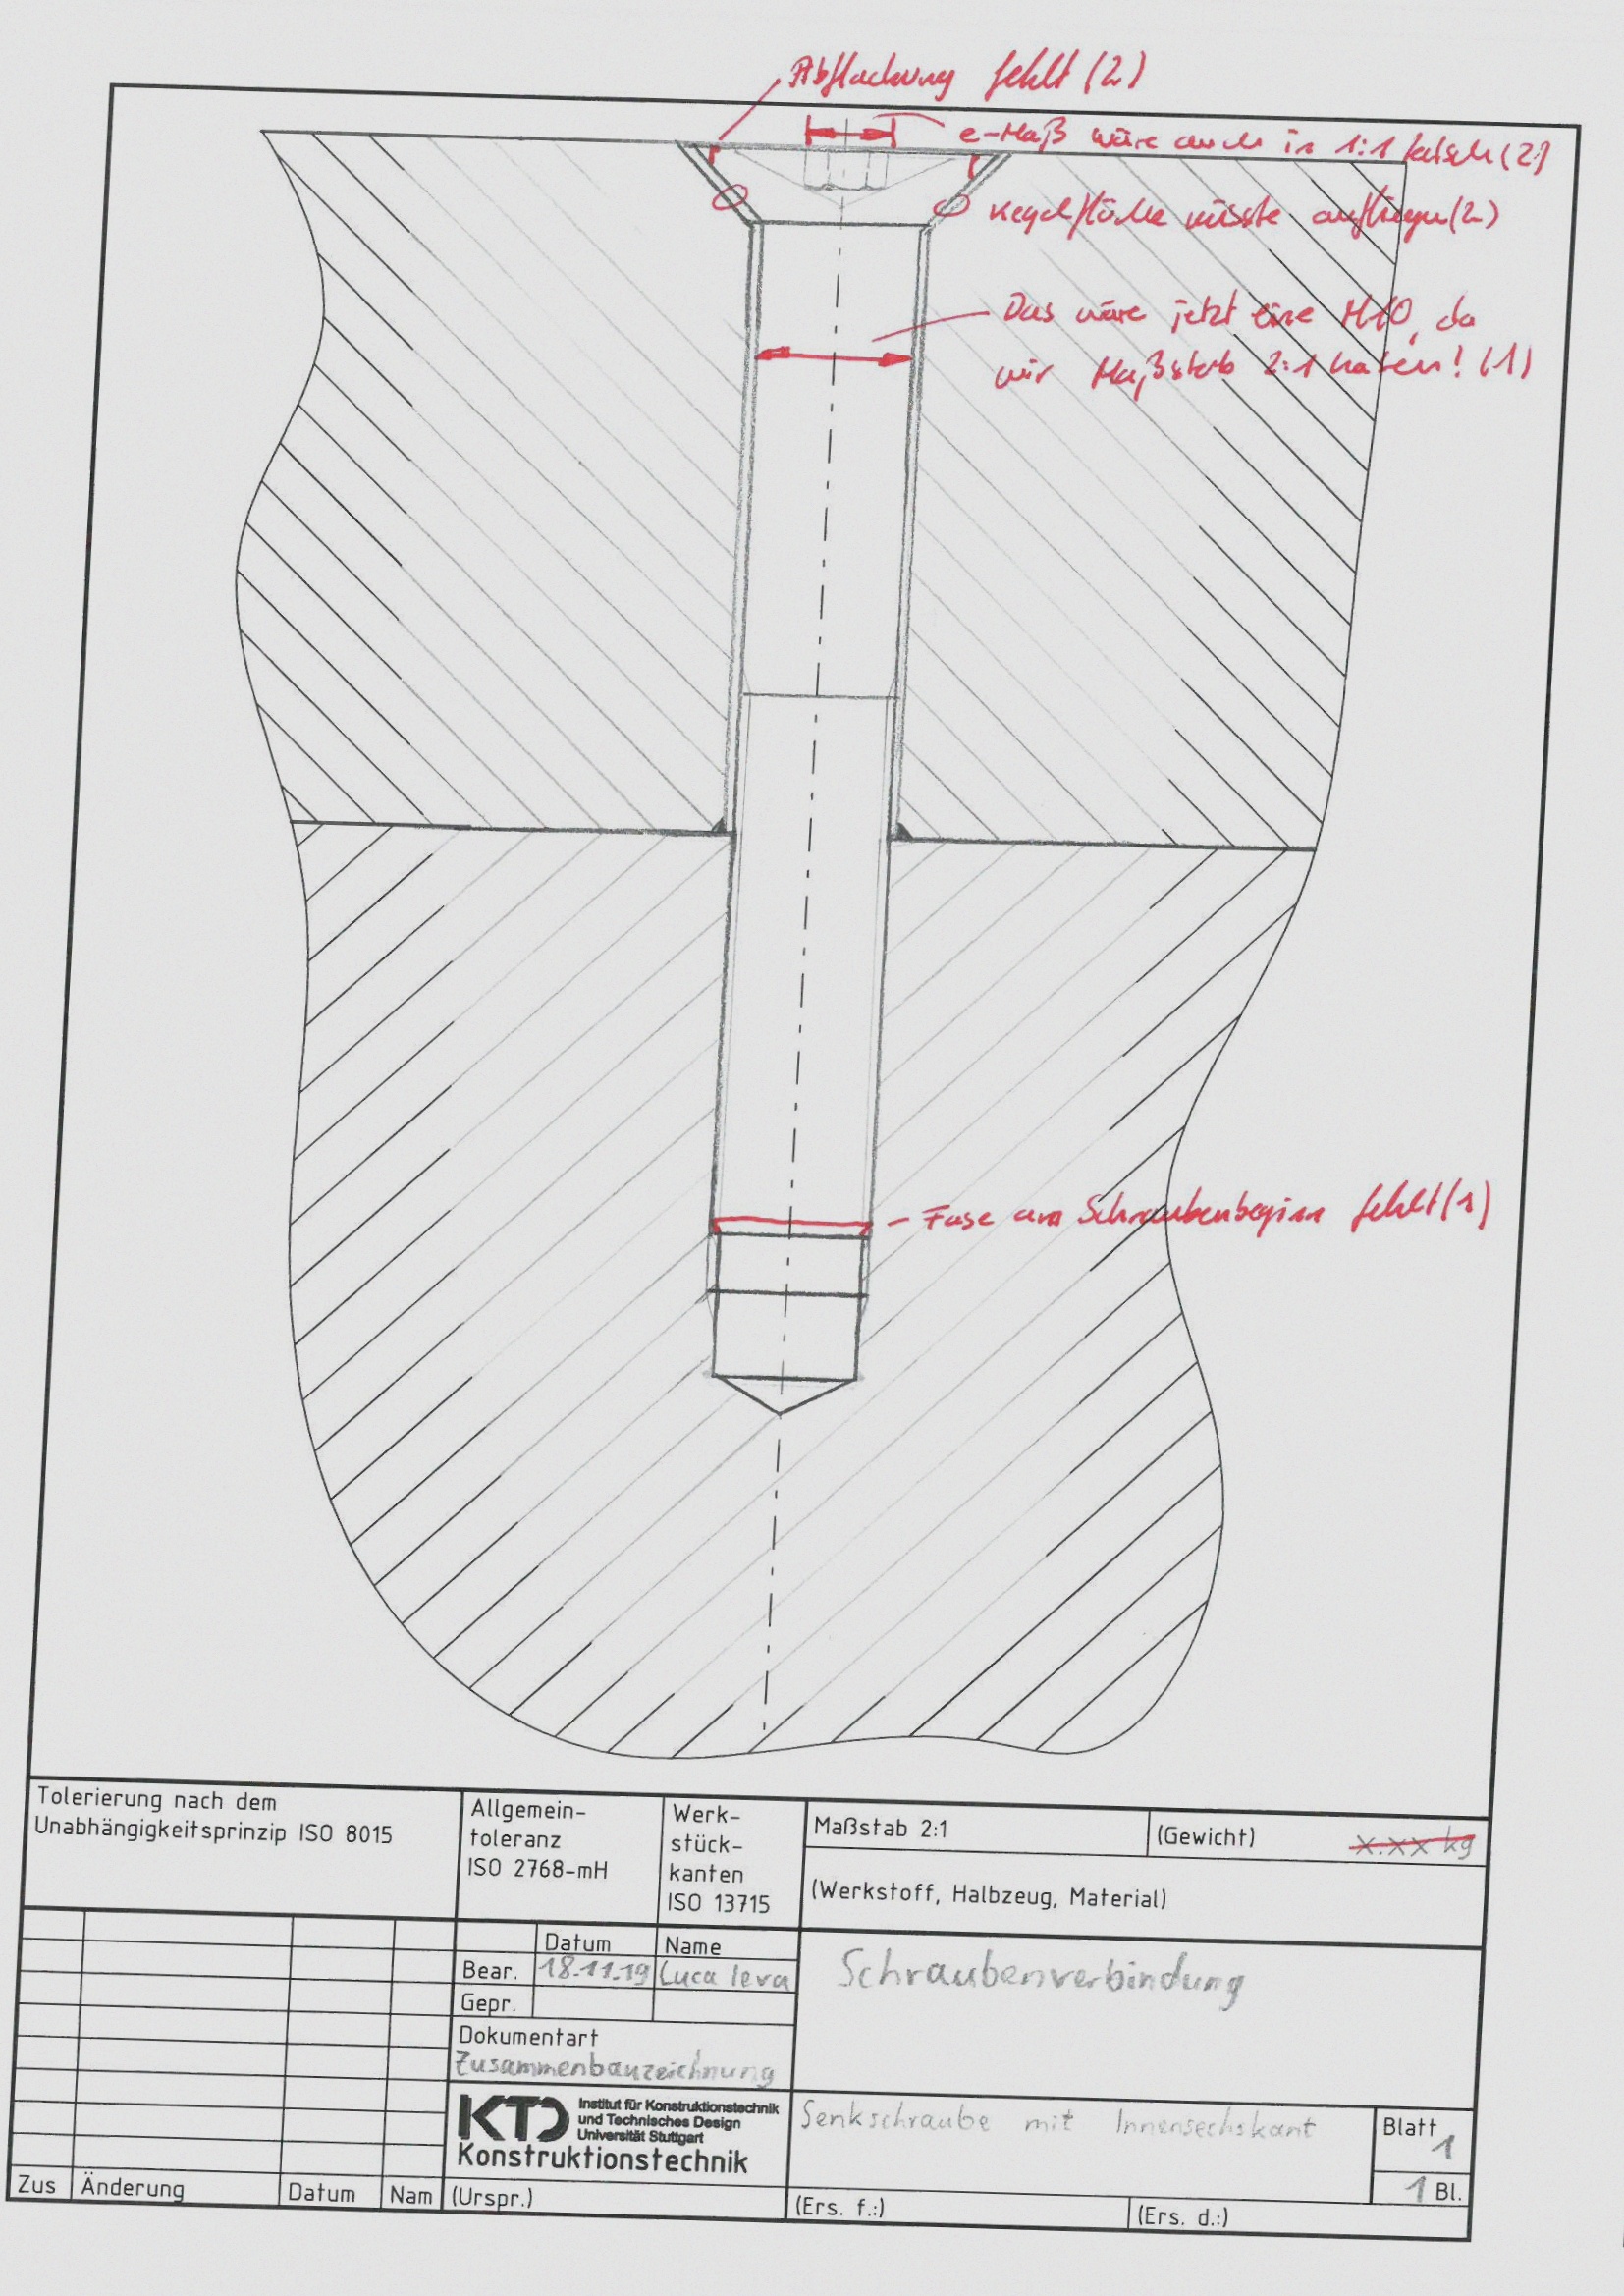 Abflachung fehlt (2)
e-Maß wäre auch in 1:1 falsch (2)
Kegelfläche müsste aufliegen (2)
Das wäre jetzt eine M10, da
wir Maßstab 2:1 haben! (1)
- Fase am Schraubenbeginn fehlt (1)
Tolerierung nach dem
Unabhängigkeitsprinzip ISO 8015
Allgemein-
toleranz
ISO 2768-mH
Werk-
stück-
kanten
ISO 13715
Maßstab 2:1
(Gewicht) x.xx kg
(Werkstoff, Halbzeug, Material)
Datum Name
Bear. 18.11.19 Luca Ieva
Gepr.
Schraubenverbindung
Dokumentart
Zusammenbauzeichnung
KTD Institut für Konstruktionstechnik
und Technisches Design
Universität Stuttgart
Konstruktionstechnik
Senkschraube mit Innensechskant
Blatt
1
1 Bl.
Zus Änderung Datum Nam (Urspr.) (Ers. f.:) (Ers. d.:)